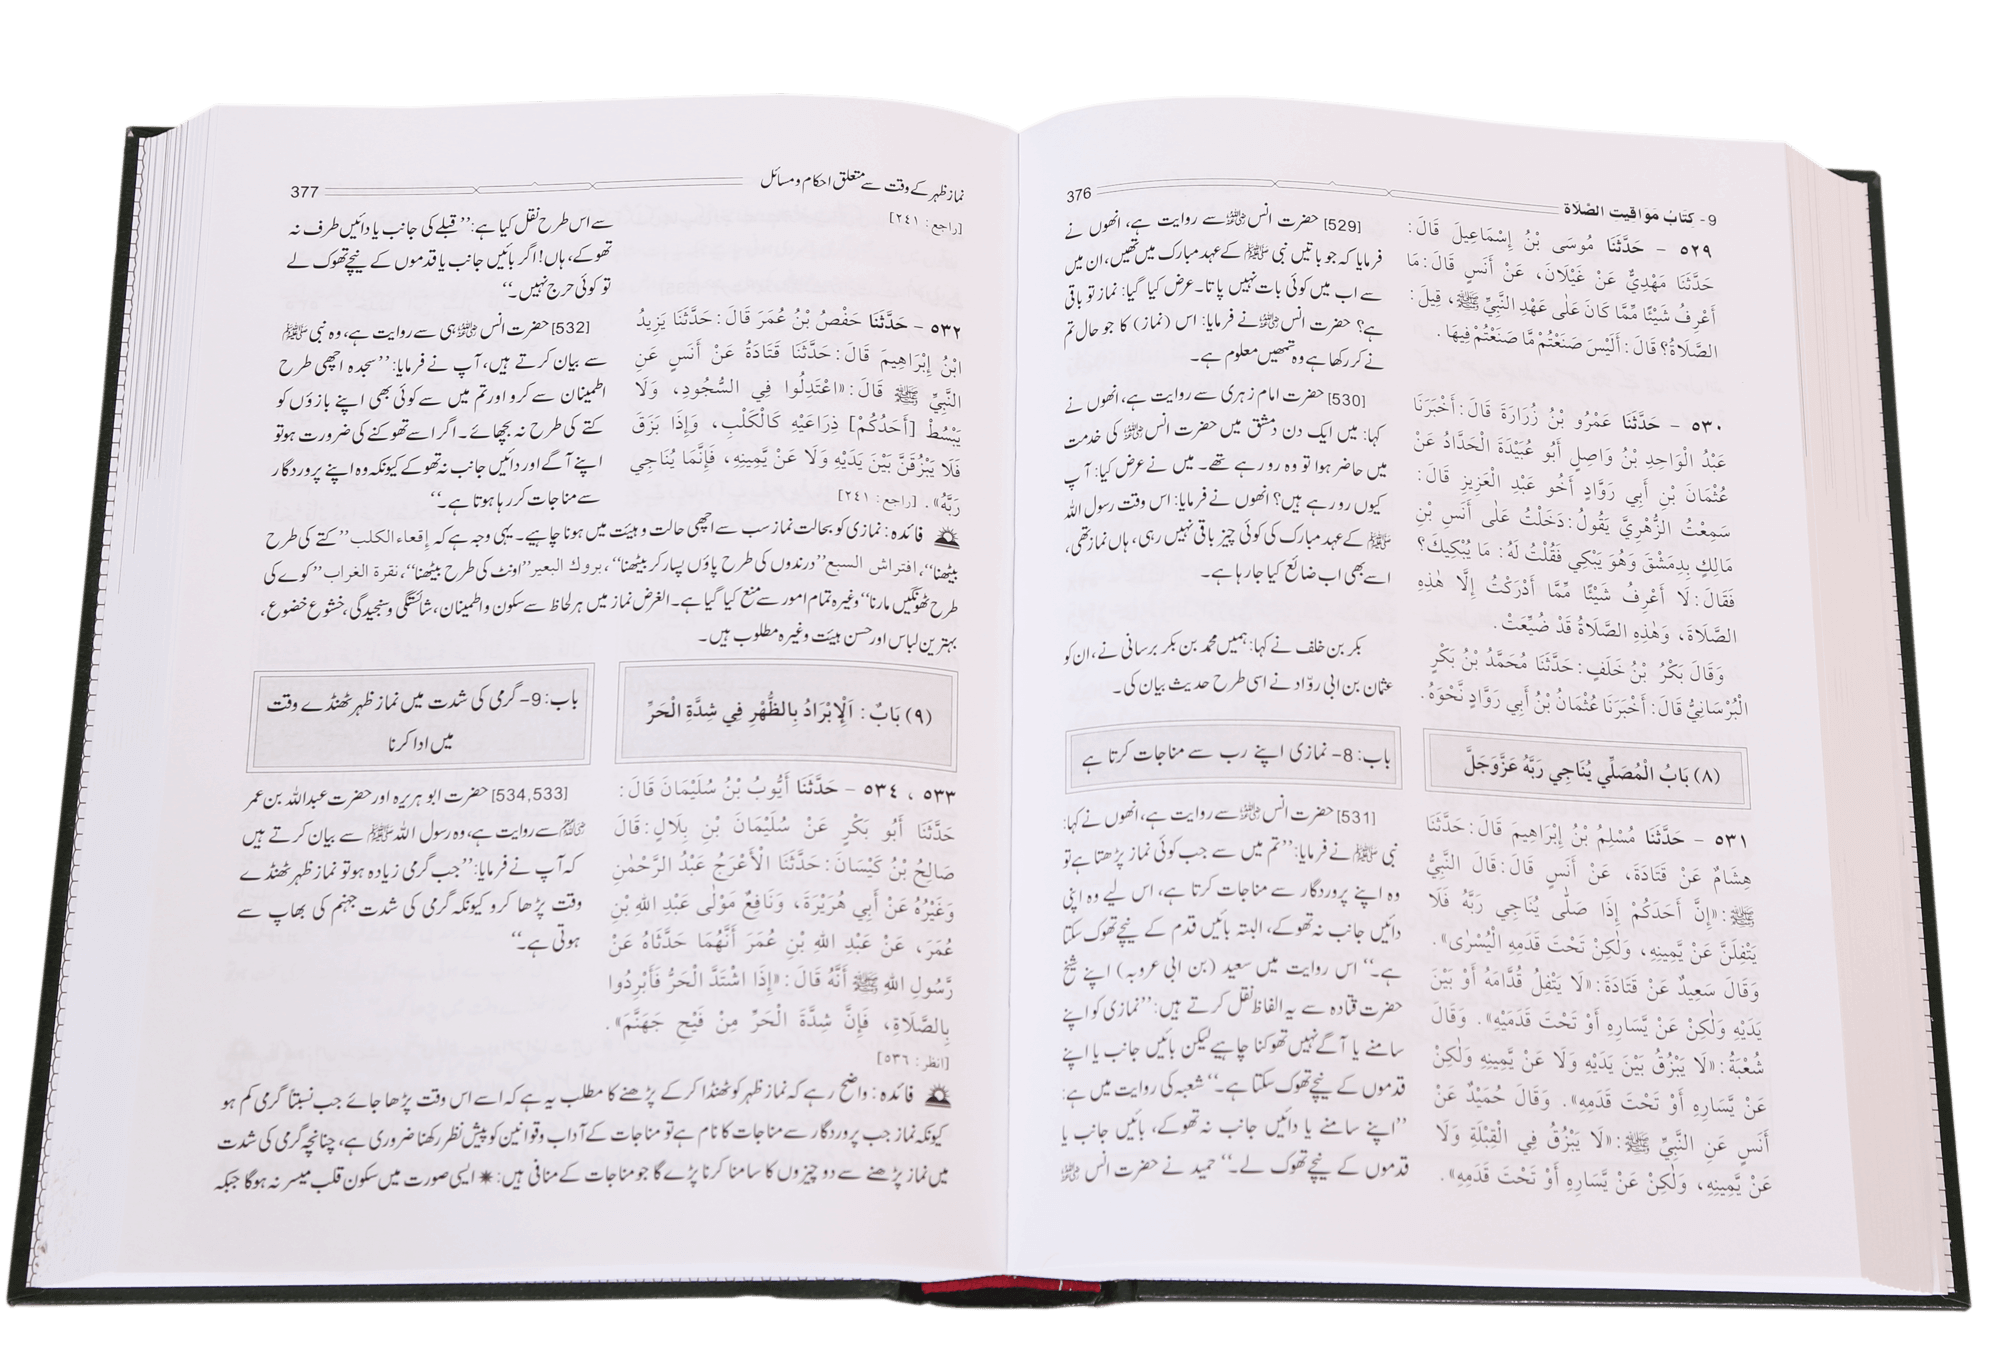 9- كتاب مواقيت الصلاة
376
٥٢٩ - حَدَّثَنَا مُوسَى بْنُ إِسْمَاعِيلَ قَالَ:
حَدَّثَنَا مَهْدِيٌّ عَنْ غَيْلَانَ، عَنْ أَنَسٍ قَالَ: مَا
أَعْرِفُ شَيْئًا مِّمَّا كَانَ عَلٰى عَهْدِ النَّبِيِّ ﷺ، قِيلَ:
الصَّلَاةُ؟ قَالَ: أَلَيْسَ صَنَعْتُمْ مَّا صَنَعْتُمْ فِيهَا.
٥٣٠ - حَدَّثَنَا عَمْرُو بْنُ زُرَارَةَ قَالَ: أَخْبَرَنَا
عَبْدُ الْوَاحِدِ بْنُ وَاصِلٍ أَبُو عُبَيْدَةَ الْحَدَّادُ عَنْ
عُثْمَانَ بْنِ أَبِي رَوَّادٍ أَخُو عَبْدِ الْعَزِيزِ قَالَ:
سَمِعْتُ الزُّهْرِيَّ يَقُولُ: دَخَلْتُ عَلٰى أَنَسِ بْنِ
مَالِكٍ بِدِمَشْقَ وَهُوَ يَبْكِي فَقُلْتُ لَهُ: مَا يُبْكِيكَ؟
فَقَالَ: لَا أَعْرِفُ شَيْئًا مِّمَّا أَدْرَكْتُ إِلَّا هٰذِهِ
الصَّلَاةَ، وَهٰذِهِ الصَّلَاةُ قَدْ ضُيِّعَتْ.
وَقَالَ بَكْرُ بْنُ خَلَفٍ: حَدَّثَنَا مُحَمَّدُ بْنُ بَكْرٍ
الْبُرْسَانِيُّ قَالَ: أَخْبَرَنَا عُثْمَانُ بْنُ أَبِي رَوَّادٍ نَّحْوَهُ.
(٨) بَابُ الْمُصَلِّي يُنَاجِي رَبَّهُ عَزَّوَجَلَّ
٥٣١ - حَدَّثَنَا مُسْلِمُ بْنُ إِبْرَاهِيمَ قَالَ: حَدَّثَنَا
هِشَامٌ عَنْ قَتَادَةَ، عَنْ أَنَسٍ قَالَ: قَالَ النَّبِيُّ
ﷺ: «إِنَّ أَحَدَكُمْ إِذَا صَلّٰى يُنَاجِي رَبَّهُ فَلَا
يَتْفِلَنَّ عَنْ يَّمِينِهِ، وَلٰكِنْ تَحْتَ قَدَمِهِ الْيُسْرٰى».
وَقَالَ سَعِيدٌ عَنْ قَتَادَةَ: «لَا يَتْفِلُ قُدَّامَهُ أَوْ بَيْنَ
يَدَيْهِ وَلٰكِنْ عَنْ يَّسَارِهِ أَوْ تَحْتَ قَدَمَيْهِ». وَقَالَ
شُعْبَةُ: «لَا يَبْزُقُ بَيْنَ يَدَيْهِ وَلَا عَنْ يَّمِينِهِ وَلٰكِنْ
عَنْ يَّسَارِهِ أَوْ تَحْتَ قَدَمِهِ». وَقَالَ حُمَيْدٌ عَنْ
أَنَسٍ عَنِ النَّبِيِّ ﷺ: «لَا يَبْزُقُ فِي الْقِبْلَةِ وَلَا
عَنْ يَّمِينِهِ، وَلٰكِنْ عَنْ يَّسَارِهِ أَوْ تَحْتَ قَدَمِهِ».
[529] حضرت انس ؓ سے روایت ہے، انھوں نے
فرمایا کہ جو باتیں نبی ﷺ کے عہد مبارک میں تھیں، ان میں
سے اب میں کوئی بات نہیں پاتا۔ عرض کیا گیا: نماز تو باقی
ہے؟ حضرت انس ؓ نے فرمایا: اس (نماز) کا جو حال تم
نے کر رکھا ہے وہ تمھیں معلوم ہے۔
[530] حضرت امام زہری سے روایت ہے، انھوں نے
کہا: میں ایک دن دمشق میں حضرت انس ؓ کی خدمت
میں حاضر ہوا تو وہ رو رہے تھے۔ میں نے عرض کیا: آپ
کیوں رو رہے ہیں؟ انھوں نے فرمایا: اس وقت رسول اللہ
ﷺ کے عہد مبارک کی کوئی چیز باقی نہیں رہی، ہاں نماز تھی،
اسے بھی اب ضائع کیا جا رہا ہے۔
بکر بن خلف نے کہا: ہمیں محمد بن بکر برسانی نے، ان کو
عثمان بن ابی روّاد نے اسی طرح حدیث بیان کی۔
باب: 8- نمازی اپنے رب سے مناجات کرتا ہے
[531] حضرت انس ؓ سے روایت ہے، انھوں نے کہا:
نبی ﷺ نے فرمایا: ’’تم میں سے جب کوئی نماز پڑھتا ہے تو
وہ اپنے پروردگار سے مناجات کرتا ہے، اس لیے وہ اپنی
دائیں جانب نہ تھوکے، البتہ بائیں قدم کے نیچے تھوک سکتا
ہے۔‘‘ اس روایت میں سعید (بن ابی عروبہ) اپنے شیخ
حضرت قتادہ سے یہ الفاظ نقل کرتے ہیں: ’’نمازی کو اپنے
سامنے یا آگے نہیں تھوکنا چاہیے لیکن بائیں جانب یا اپنے
قدموں کے نیچے تھوک سکتا ہے۔‘‘ شعبہ کی روایت میں ہے:
’’اپنے سامنے یا دائیں جانب نہ تھوکے، بائیں جانب یا
قدموں کے نیچے تھوک لے۔‘‘ حمید نے حضرت انس ؓ
نماز ظہر کے وقت سے متعلق احکام و مسائل
377
[راجع: ٢٤١]
٥٣٢ - حَدَّثَنَا حَفْصُ بْنُ عُمَرَ قَالَ: حَدَّثَنَا يَزِيدُ
ابْنُ إِبْرَاهِيمَ قَالَ: حَدَّثَنَا قَتَادَةُ عَنْ أَنَسٍ عَنِ
النَّبِيِّ ﷺ قَالَ: «اعْتَدِلُوا فِي السُّجُودِ، وَلَا
يَبْسُطْ [أَحَدُكُمْ] ذِرَاعَيْهِ كَالْكَلْبِ، وَإِذَا بَزَقَ
فَلَا يَبْزُقَنَّ بَيْنَ يَدَيْهِ وَلَا عَنْ يَّمِينِهِ، فَإِنَّمَا يُنَاجِي
رَبَّهُ». [راجع: ٢٤١]
سے اس طرح نقل کیا ہے: ’’قبلے کی جانب یا دائیں طرف نہ
تھوکے، ہاں! اگر بائیں جانب یا قدموں کے نیچے تھوک لے
تو کوئی حرج نہیں۔‘‘
[532] حضرت انس ؓ ہی سے روایت ہے، وہ نبی ﷺ
سے بیان کرتے ہیں، آپ نے فرمایا: ’’سجدہ اچھی طرح
اطمینان سے کرو اور تم میں سے کوئی بھی اپنے بازوؤں کو
کتے کی طرح نہ بچھائے۔ اگر اسے تھوکنے کی ضرورت ہو تو
اپنے آگے اور دائیں جانب نہ تھوکے کیونکہ وہ اپنے پروردگار
سے مناجات کر رہا ہوتا ہے۔‘‘
فائدہ: نمازی کو بحالت نماز سب سے اچھی حالت و ہیئت میں ہونا چاہیے۔ یہی وجہ ہے کہ إقعاء الكلب ’’کتے کی طرح
بیٹھنا‘‘، افتراش السبع ’’درندوں کی طرح پاؤں پسار کر بیٹھنا‘‘، بروك البعير ’’اونٹ کی طرح بیٹھنا‘‘، نقرة الغراب ’’کوے کی
طرح ٹھونگیں مارنا‘‘ وغیرہ تمام امور سے منع کیا گیا ہے۔ الغرض نماز میں ہر لحاظ سے سکون و اطمینان، شائستگی و سنجیدگی، خشوع خضوع،
بہترین لباس اور حسن ہیئت وغیرہ مطلوب ہیں۔
(٩) بَابٌ: اَلْإِبْرَادُ بِالظُّهْرِ فِي شِدَّةِ الْحَرِّ
باب: 9- گرمی کی شدت میں نماز ظہر ٹھنڈے وقت
میں ادا کرنا
٥٣٣ ، ٥٣٤ - حَدَّثَنَا أَيُّوبُ بْنُ سُلَيْمَانَ قَالَ:
حَدَّثَنَا أَبُو بَكْرٍ عَنْ سُلَيْمَانَ بْنِ بِلَالٍ: قَالَ
صَالِحُ بْنُ كَيْسَانَ: حَدَّثَنَا الْأَعْرَجُ عَبْدُ الرَّحْمٰنِ
وَغَيْرُهُ عَنْ أَبِي هُرَيْرَةَ، وَنَافِعٌ مَوْلٰى عَبْدِ اللهِ بْنِ
عُمَرَ، عَنْ عَبْدِ اللهِ بْنِ عُمَرَ أَنَّهُمَا حَدَّثَاهُ عَنْ
رَّسُولِ اللهِ ﷺ أَنَّهُ قَالَ: «إِذَا اشْتَدَّ الْحَرُّ فَأَبْرِدُوا
بِالصَّلَاةِ، فَإِنَّ شِدَّةَ الْحَرِّ مِنْ فَيْحِ جَهَنَّمَ».
[انظر: ٥٣٦]
[534,533] حضرت ابو ہریرہ اور حضرت عبداللہ بن عمر
ؓ سے روایت ہے، وہ رسول اللہ ﷺ سے بیان کرتے ہیں
کہ آپ نے فرمایا: ’’جب گرمی زیادہ ہو تو نماز ظہر ٹھنڈے
وقت پڑھا کرو کیونکہ گرمی کی شدت جہنم کی بھاپ سے
ہوتی ہے۔‘‘
فائدہ: واضح رہے کہ نماز ظہر کو ٹھنڈا کر کے پڑھنے کا مطلب یہ ہے کہ اسے اس وقت پڑھا جائے جب نسبتاً گرمی کم ہو
کیونکہ نماز جب پروردگار سے مناجات کا نام ہے تو مناجات کے آداب و قوانین کو پیش نظر رکھنا ضروری ہے، چنانچہ گرمی کی شدت
میں نماز پڑھنے سے دو چیزوں کا سامنا کرنا پڑے گا جو مناجات کے منافی ہیں: ✷ ایسی صورت میں سکون قلب میسر نہ ہوگا جبکہ